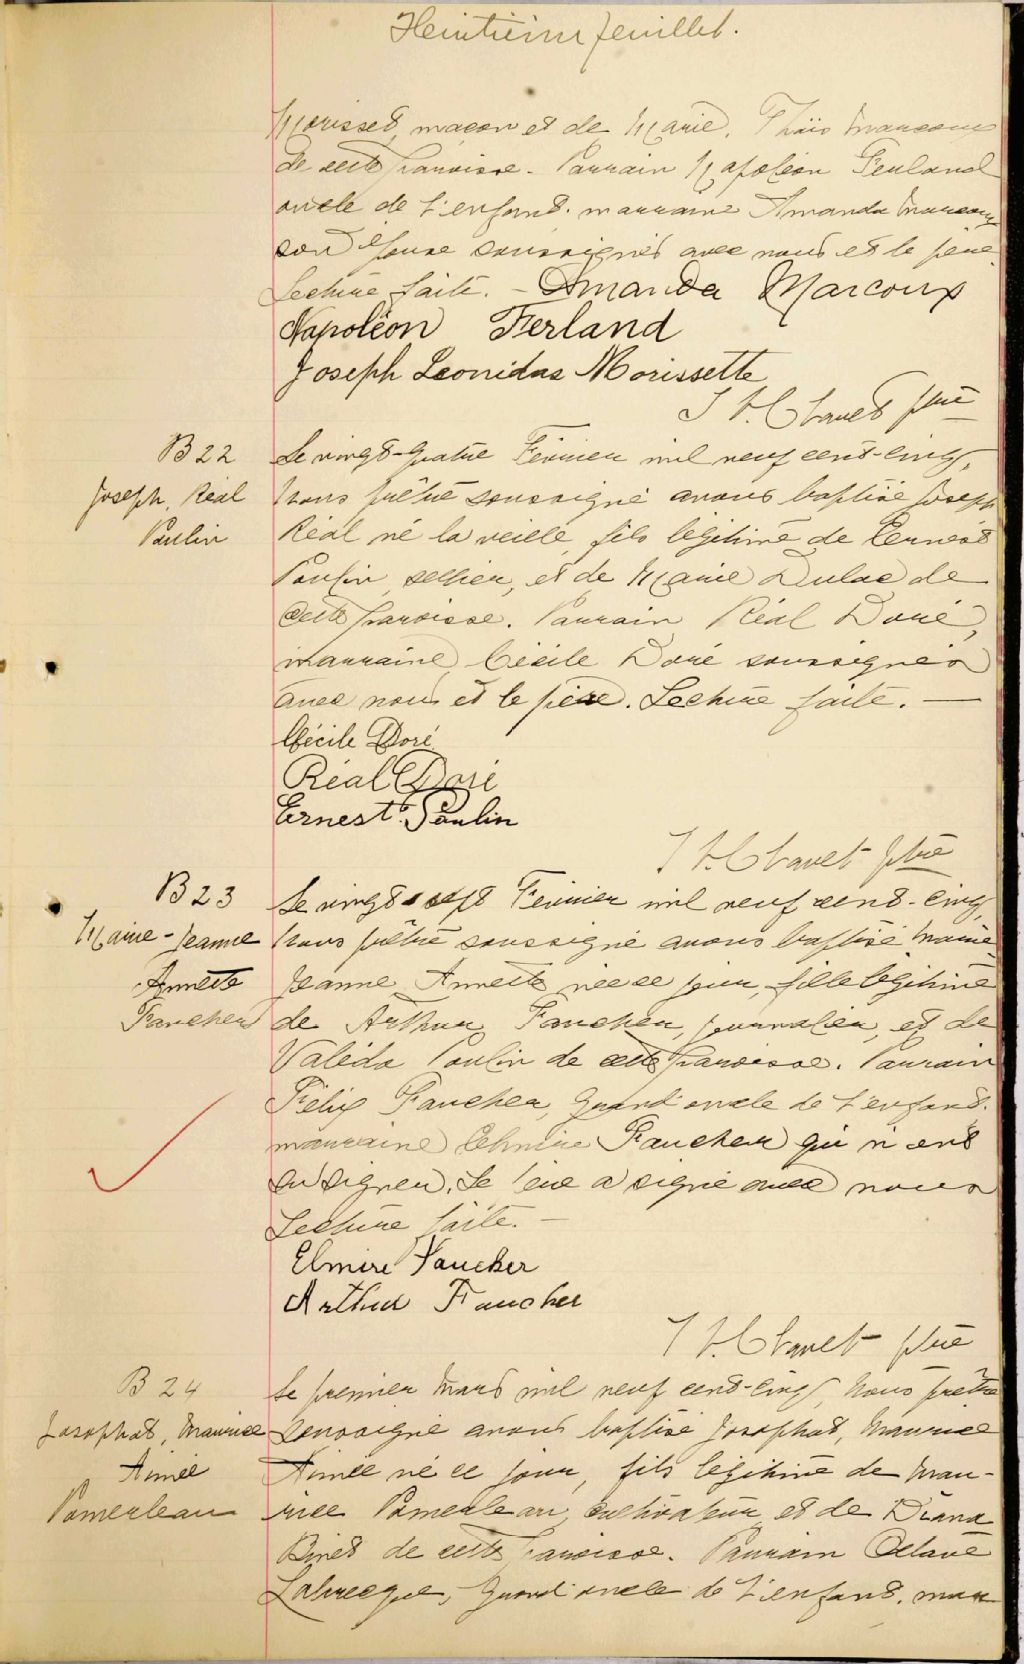 Huitième feuillet.
Morisset, maçon et de Marie, Thaïs Marcoux
de cette paroisse. Parrain Napoléon Ferland
oncle de l'enfant. marraine Amanda Marcoux
son épouse soussignés avec nous et le père
Lecture faite. - Amanda Marcoux
Napoléon Ferland
Joseph Leonidas Morissette
ptre
B 22
Joseph, Réal
Poulin
Le vingt-quatre Février mil neuf cent-cinq,
Nous prêtre soussigné avons baptisé Joseph
Réal né la veille, fils légitime de Ernest
Poulin, sellier, et de Marie Dulac de
cette paroisse. Parrain Réal Doré,
marraine Cécile Doré soussignés
avec nous et le père. Lecture faite. —
Cécile Doré
Réal Doré
Ernest Poulin
ptre
B 23
Marie-Jeanne
Annette
Faucher
Le vingt sept Février mil neuf cent-cinq,
Nous prêtre soussigné avons baptisé Marie
Jeanne Annette née ce jour, fille légitime
de Arthur Faucher, journalier, et de
Valéda Poulin de cette paroisse. Parrain
Félix Faucher, Grand oncle de l'enfant.
marraine Elmire Faucher qui n'ont
su signer. Le père a signé avec nous
Lecture faite. -
Elmire Faucher
Arthur Faucher
ptre
B 24
Josaphat, Maurice
Aimée
Pomerleau
Le premier Mars mil neuf cent-cinq, Nous prêtre
soussigné avons baptisé Josaphat, Maurice
Aimée né ce jour, fils légitime de Mau-
rice Pomerleau, cultivateur et de Diana
Binet de cette paroisse. Parrain Octave
Labrecque, Grand oncle de l'enfant. mar